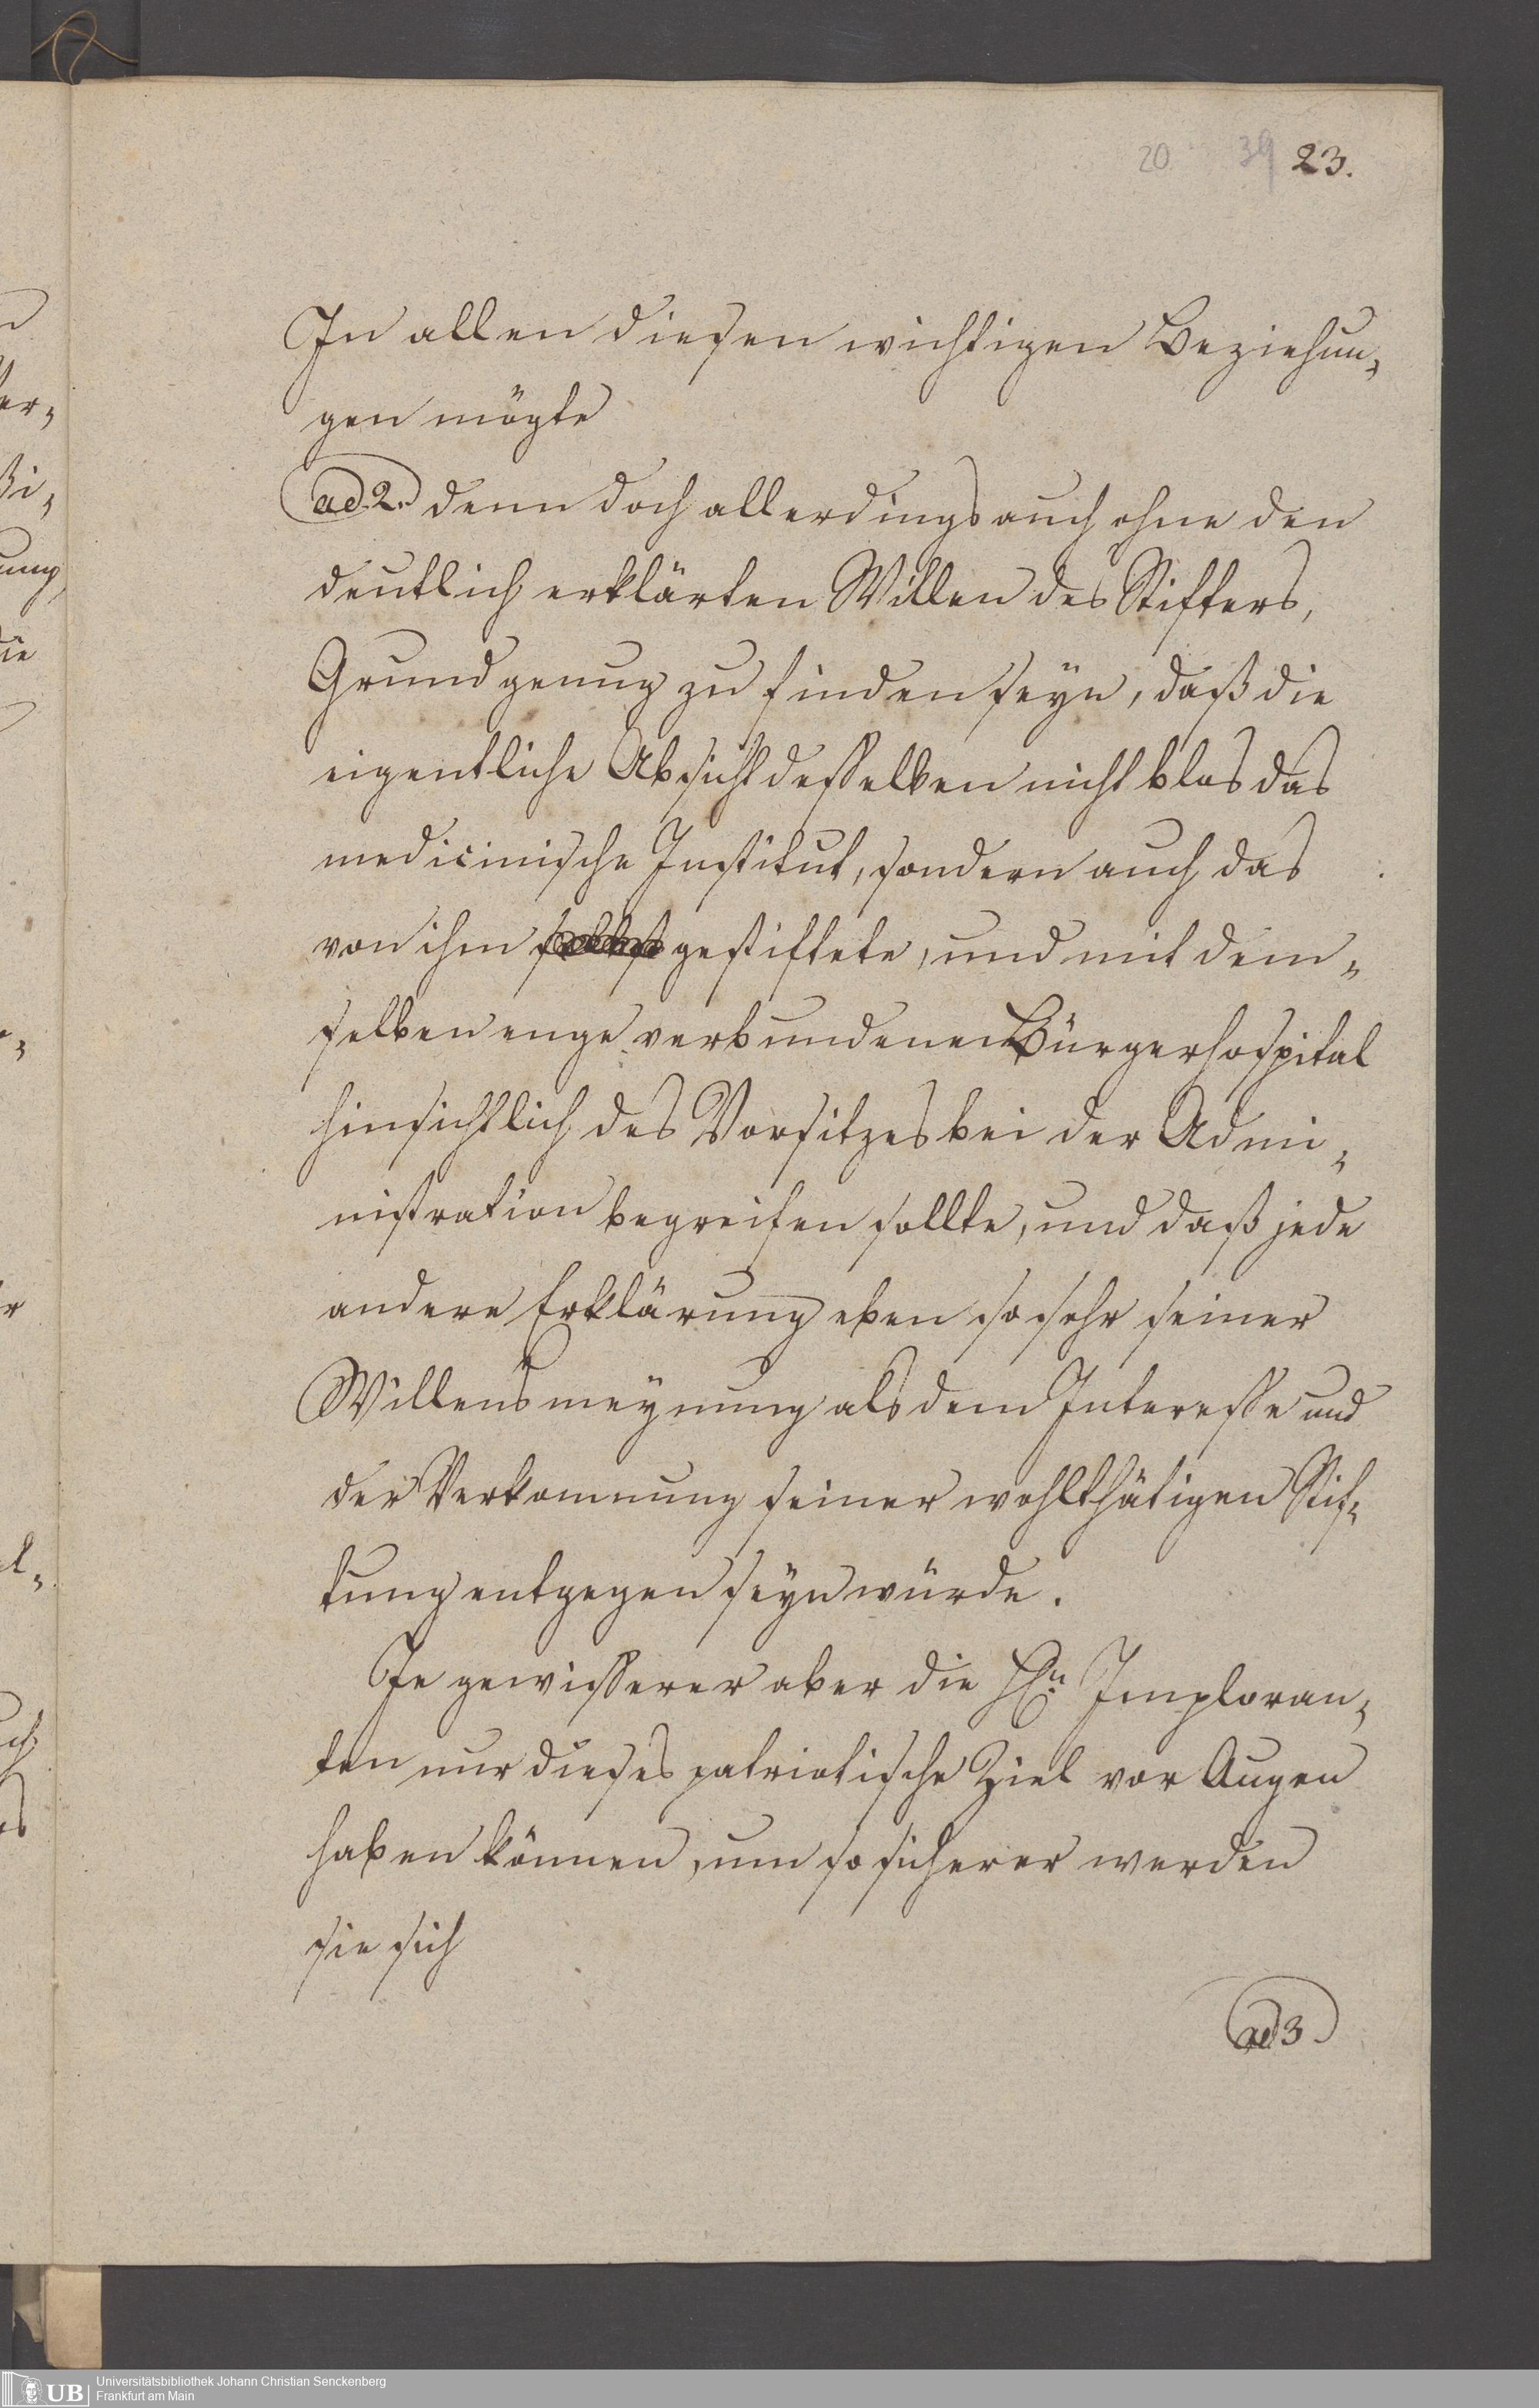 20 39 23.
In allen diesen wichtigen Beziehun¬
gen mögte
ad. 2. denn doch allerdings auch ohne den
deutlich erklärten Willen des Stifters,
Grund genug zu finden seyn, daß die
eigentliche Absicht desselben nicht blos das
medicinische Institut, sondern auch das
von ihm selbst gestiftete, und mit dem¬
selben enge verbundenen Bürgerhospital
hinsichtlich des Vorsitzes bei der Admi¬
nistration begreifen sollte, und daß jede
andere Erklärung eben so sehr seiner
Willensmeynung als dem Interesse und
der Verkomnung seiner wohlthätigen Stif¬
tung entgegen seyn würde.
Je gewisserer aber die Hn. Imploran¬
ten nur dieses patriotische Ziel vor Augen
haben können, um so sicherer werden
sie sich
ad 3.
UB Universitätsbibliothek Johann Christian Senckenberg
Frankfurt am Main